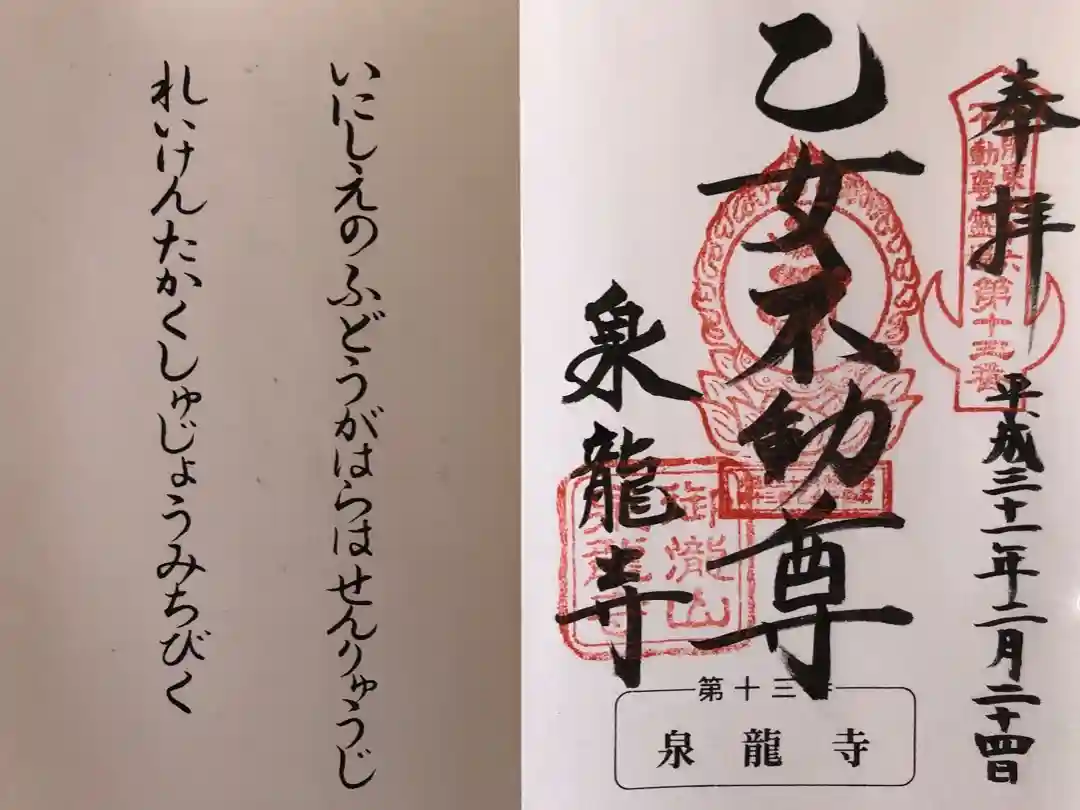 奉拝
平成三十一年二月二十四日
乙女不動尊
泉龍寺
第十三番
御瀧山
泉龍寺
第十三
泉龍寺
いにしえのふどうがはらはせんりゅうじ
れいけんたかくしゅじょうみちびく